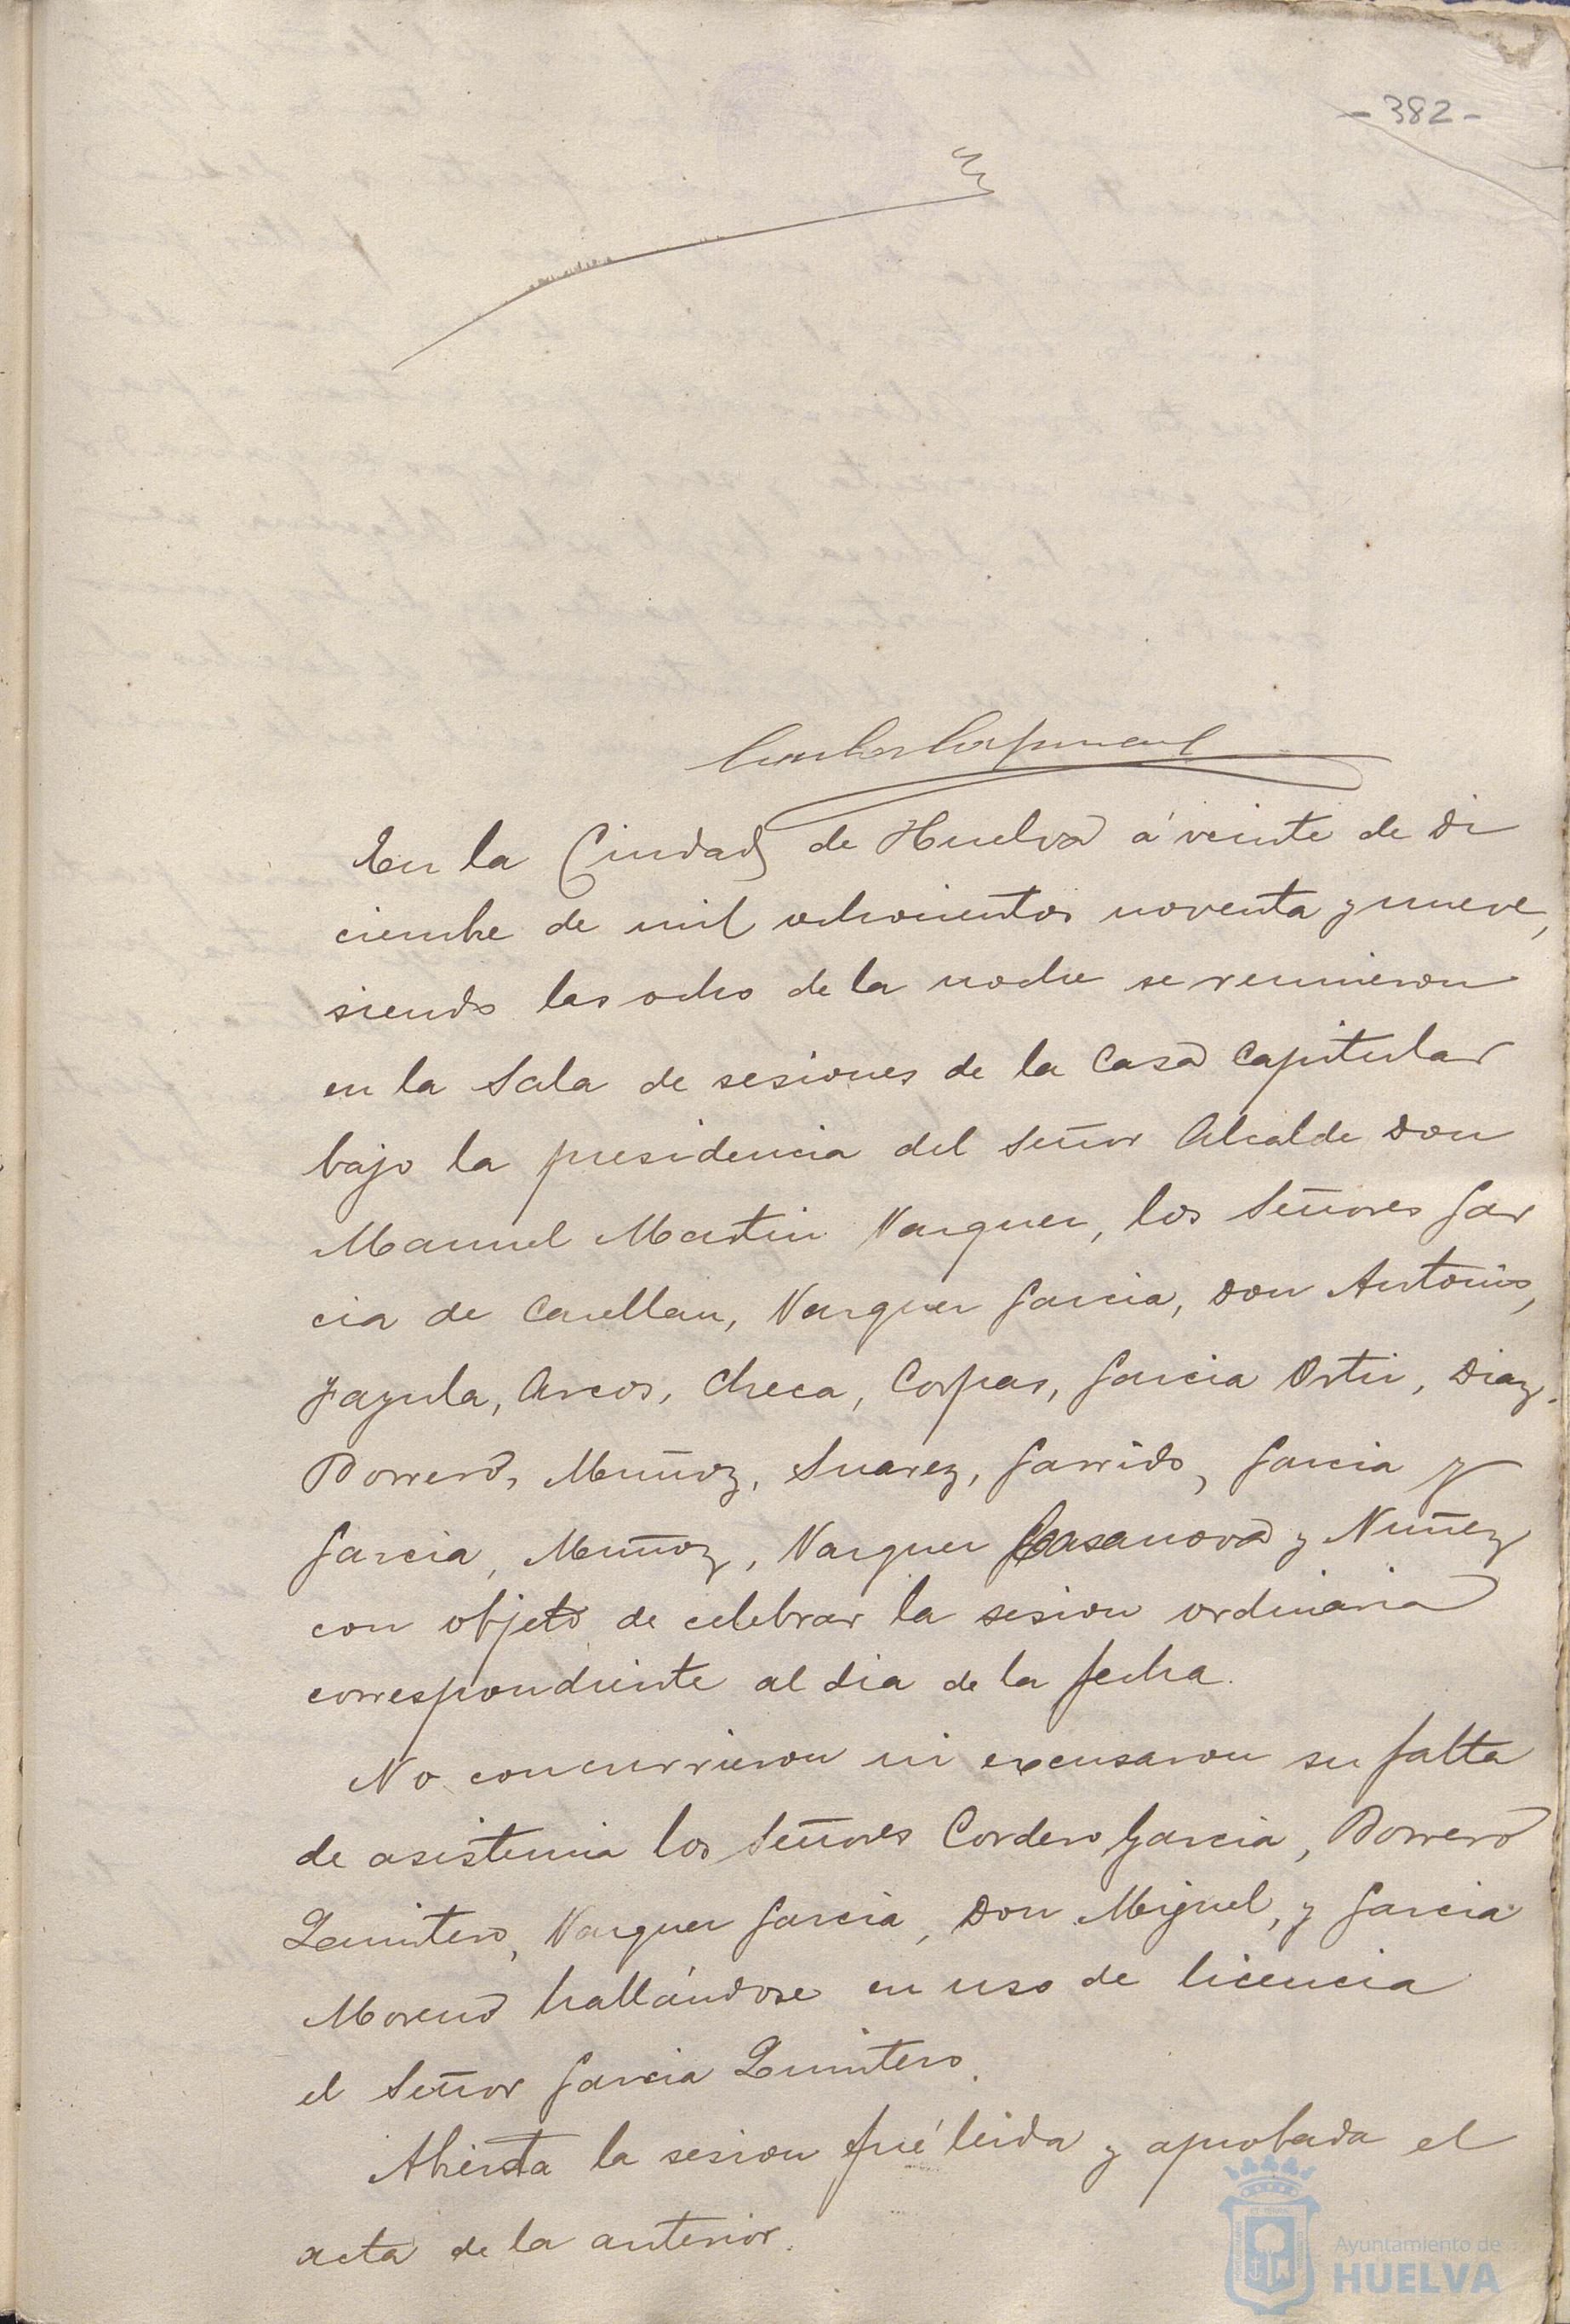 - 382 -
En la Ciudad de Huelva á veinte de di
ciembre de mil ochocientos noventa y nueve,
siendo las ocho de la noche se reunieron
en la Sala de sesiones de la Casa Capitular
bajo la presidencia del Señor Alcalde Don
Manuel Martin Vazquez, los Señores Gar
cia de Casellan, Vazquez Garcia, Don Antonio,
Jazula, Arcos, Checa, Corpas, Garcia Ortiz, Diaz,
Borrero, Muñoz, Suarez, Garrido, Garcia y
Garcia, Muñoz, Vazquez Casanova y Nuñez
con objeto de celebrar la sesion ordinaria
correspondiente al dia de la fecha.
No concurrieron ni excusaron su falta
de asistencia los Señores Cordero Garcia, Borrero
Quintero, Vazquez Garcia, Don Miguel, y Garcia
Moreno hallándose en uso de licencia
el Señor Garcia Quintero.
Abierta la sesion fué leida y aprobada el
acta de la anterior.
Ayuntamiento de
HUELVA